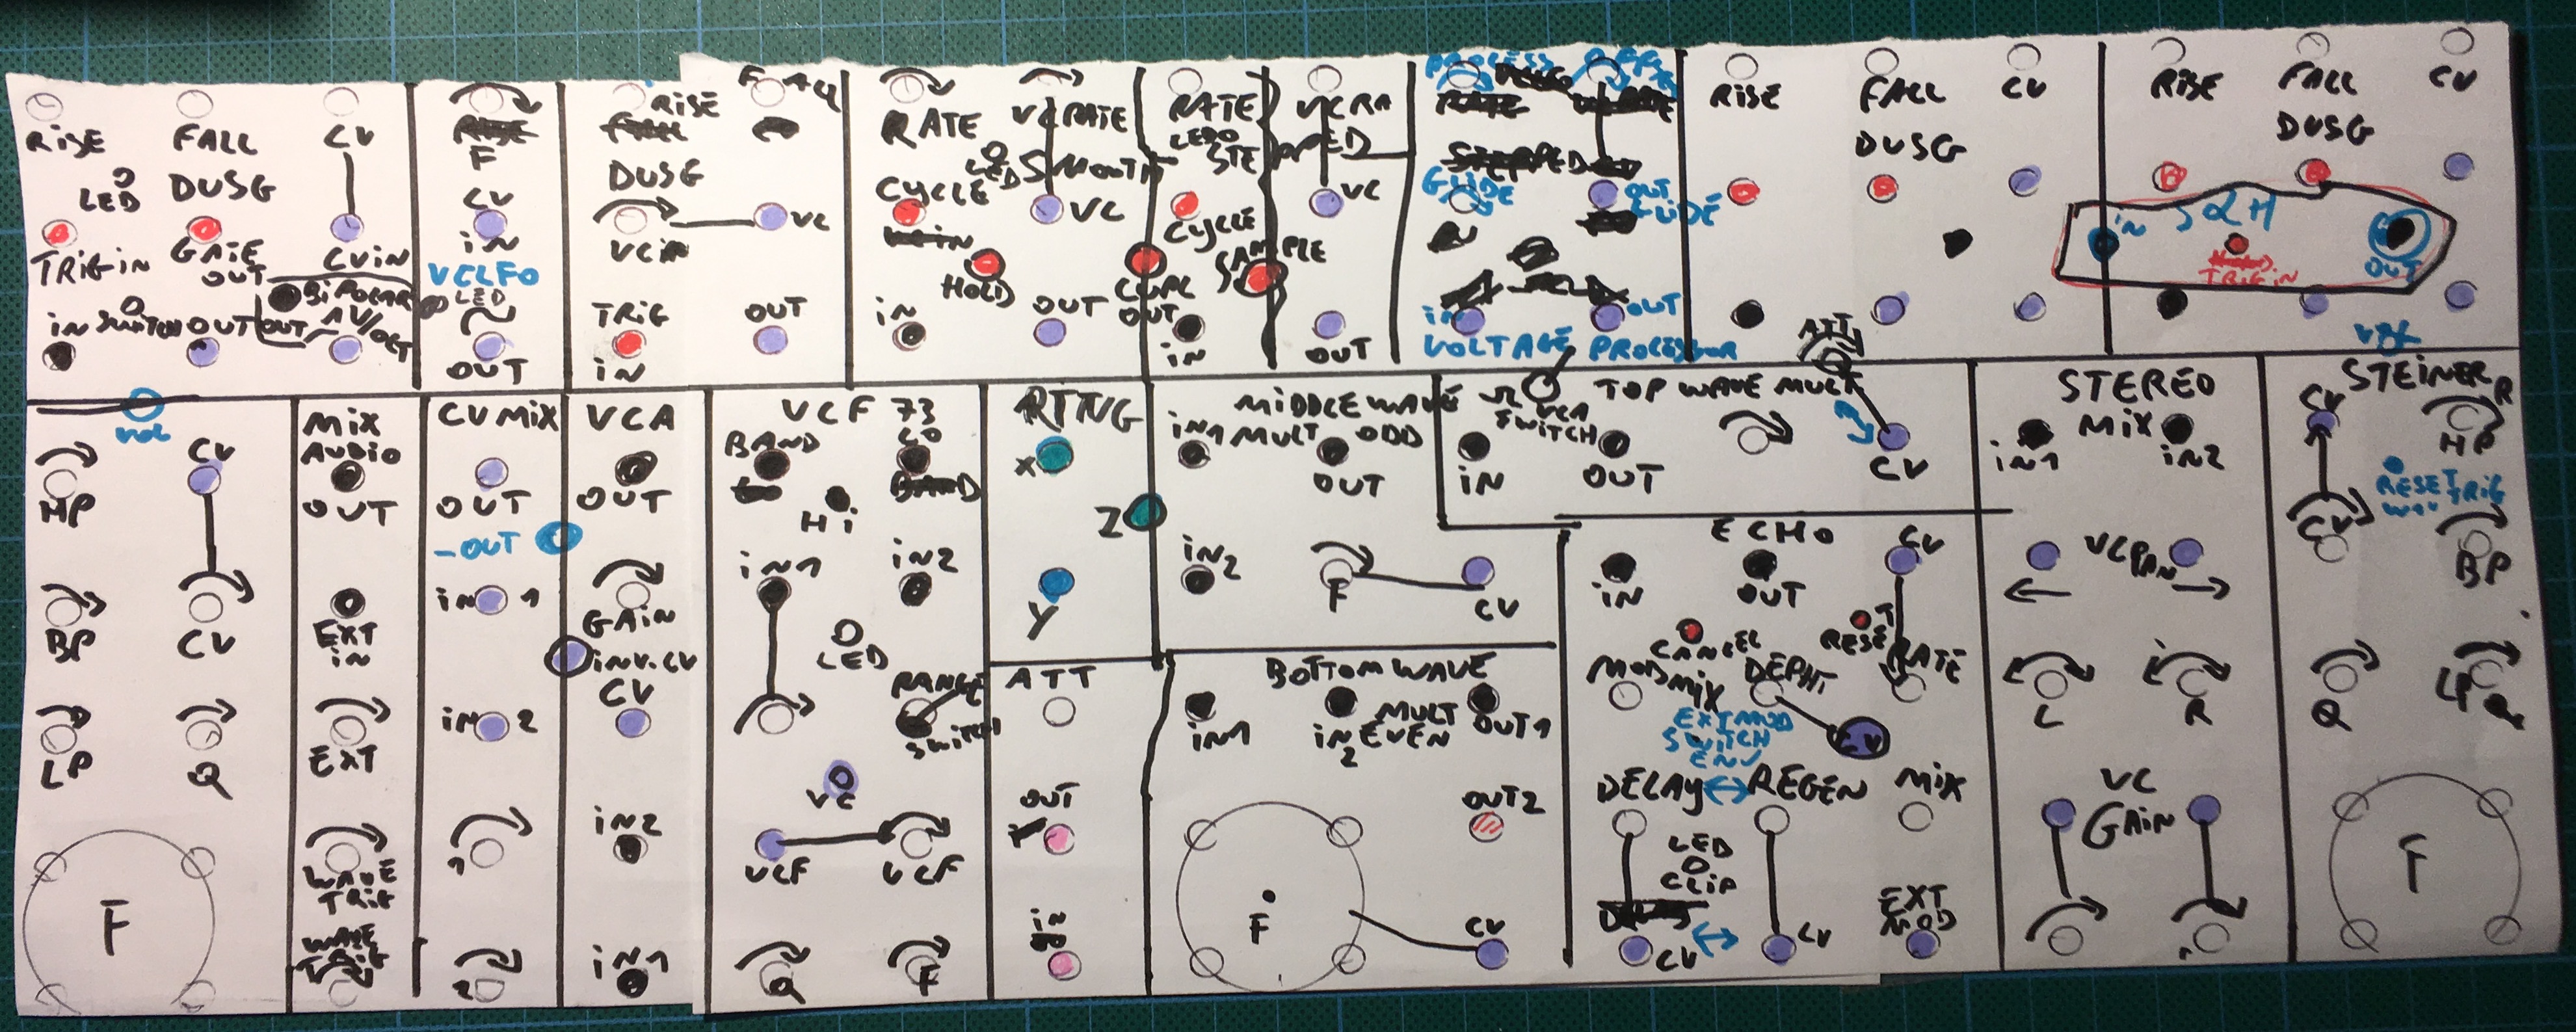 RISE
FALL
CV
LED
DUSG
TRIG IN
GATE
OUT
CV IN
BIPOLAR
IN
SWITCH
OUT
OUT
1V/OCT
F
CV
IN
VCLFO
LED
OUT
RISE
DUSG
VC IN
VC
TRIG
IN
OUT
RATE
VC RATE
LED
SMOUTH
CYCLE
VC
HOLD
IN
OUT
RATE
LED
STEPPED
CYCLE
SAMPLE
CUPL
OUT
IN
VC RA
VC
OUT
PROCESS
GLIDE
OUT
GLIDE
IN
OUT
VOLTAGE PROCESSOR
RISE
FALL
CV
DUSG
ATT
RISE
FALL
CV
DUSG
IN
S&H
TRIG IN
OUT
VOL
HP
CV
BP
CV
LP
Q
F
MIX
AUDIO
OUT
EXT
IN
EXT
WAVE
TRIG
WAVE
CV MIX
OUT
-OUT
IN 1
IN 2
1
2
VCA
OUT
GAIN
INV. CV
CV
IN2
IN1
VCF 73
BAND
LO
HI
IN1
IN2
LED
RANGE
SWITCH
VC
VCF
VCF
Q
F
RING
X
Z
Y
ATT
OUT
IN
MIDDLE WAVE
IN1
MULT
ODD
OUT
IN2
F
CV
TOP WAVE MULT
VCA
SWITCH
IN
OUT
CV
BOTTOM WAVE
IN1
IN
2
MULT
EVEN
OUT1
OUT2
F
CV
ECHO
CV
IN
OUT
CANCEL
RESET
MOD
MIX
DEPHT
RATE
EXT MOD
SWITCH
ENV
CV
DELAY
REGEN
MIX
LED
CLIP
CV
CV
EXT
MOD
STEREO
MIX
IN1
IN2
VCPAN
L
R
VC
GAIN
STEINER
CV
HP
RESET TRIG
CV
BP
Q
LP
F